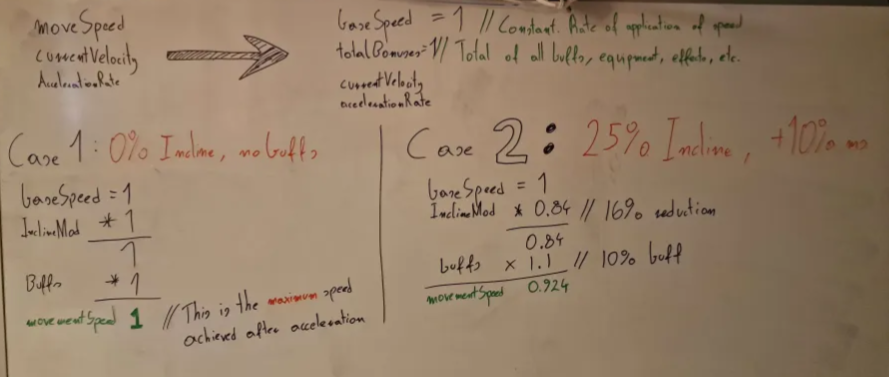 moveSpeed
currentVelocity
AccelerationRate
baseSpeed = 1 // Constant. Rate of application of speed
totalBonuses=1// Total of all buffs, equipment, effects, etc.
currentVelocity
accelerationRate
Case 1: 0% Incline, no buffs
baseSpeed = 1
InclineMod * 1
1
Buffs * 1
movementSpeed 1 // This is the maximum speed
achieved after acceleration
Case 2: 25% Incline, +10% ms
baseSpeed = 1
InclineMod * 0.84 // 16% reduction
0.84
buffs × 1.1 // 10% buff
movementSpeed 0.924